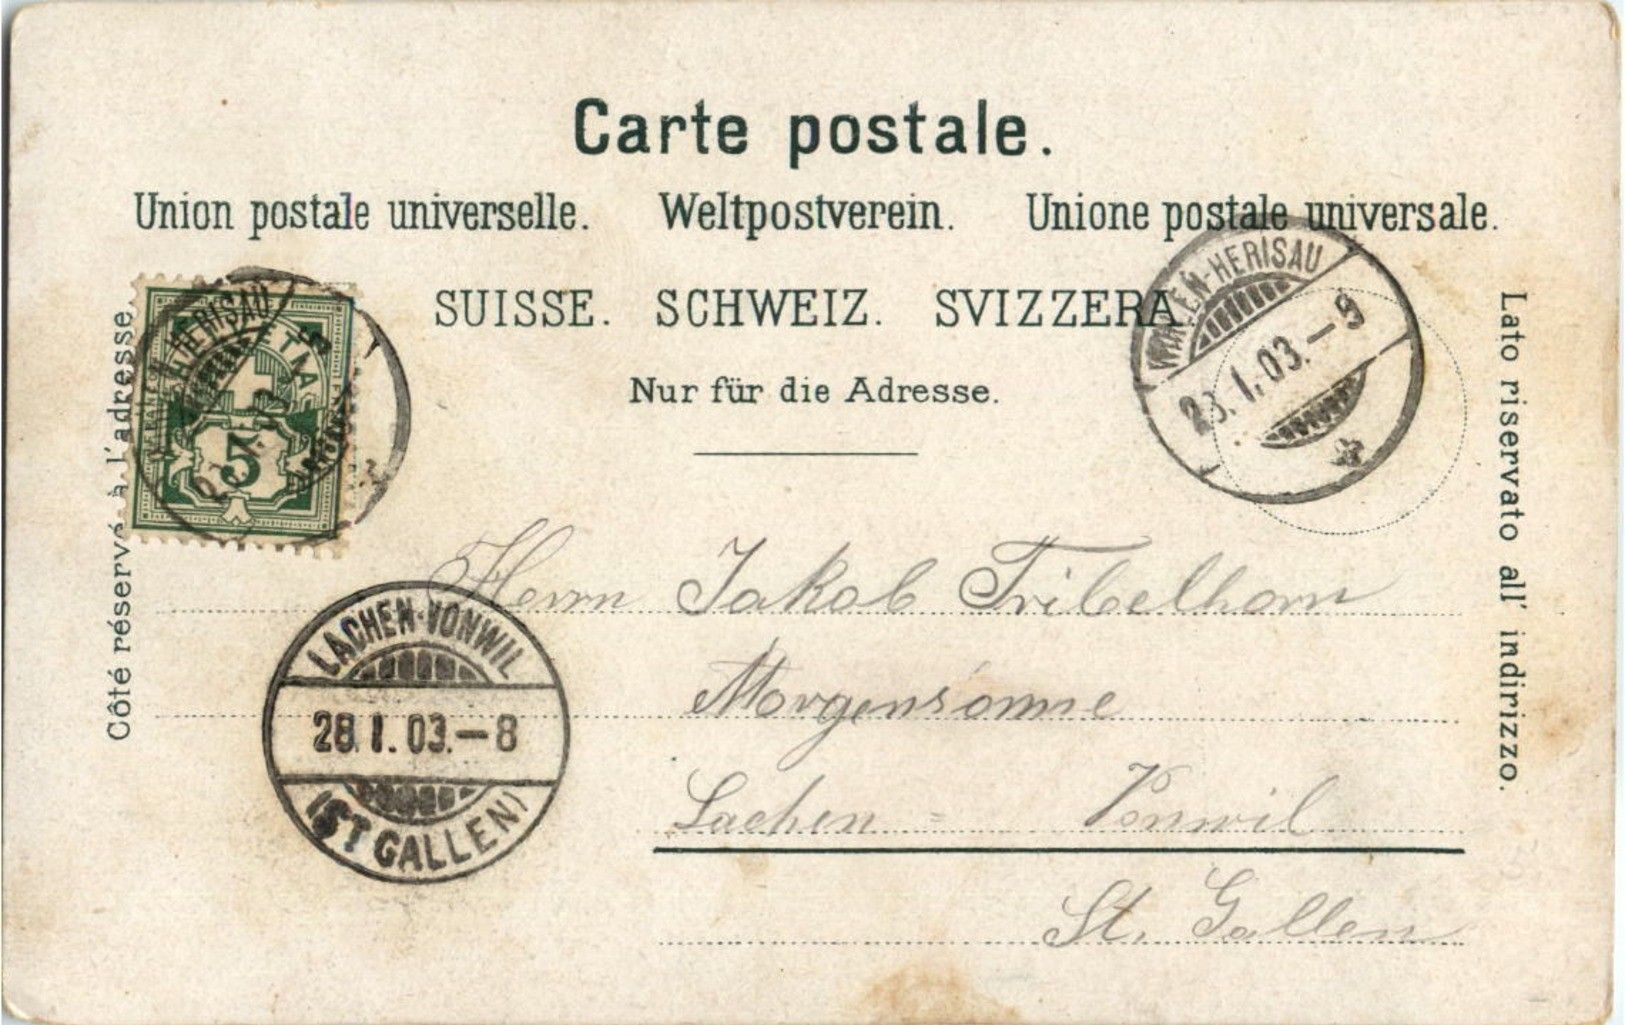 Carte postale.
Union postale universelle. Weltpostverein. Unione postale universale.
SUISSE. SCHWEIZ. SVIZZERA.
Nur für die Adresse.
Côté réservé à l'adresse.
Lato riservato all' indirizzo.
HERISAU
5
-HERISAU
28.I.03.–9
LACHEN-VONWIL
28.I.03.–8
(ST GALLEN)
Herrn Jakob Tribelhorn
Morgensonne
Lachen = Vonwil
St. Gallen